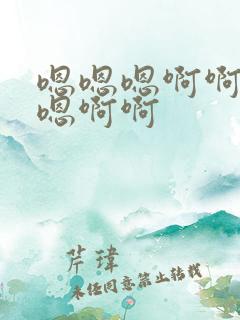 嗯嗯嗯啊啊
嗯啊啊
芹瑋
未经同意禁止转载